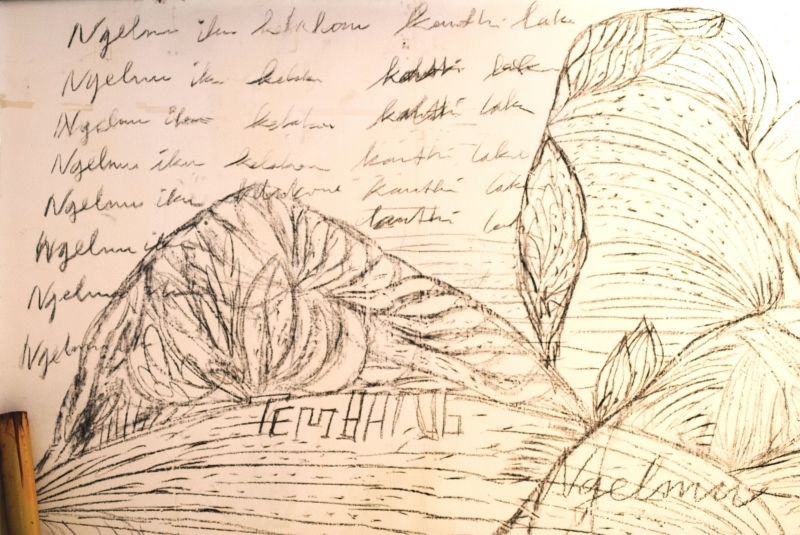 Ngelmu iku kelakone kanthi laku
Ngelmu iku kelakon kanthi laku
Ngelmu iku kelakon kanthi laku
Ngelmu iku kelakon kanthi laku
Ngelmu iku kelakone kanthi laku
Ngelmu iku kanthi
Ngelmu
Ngelmu
Ngelmu